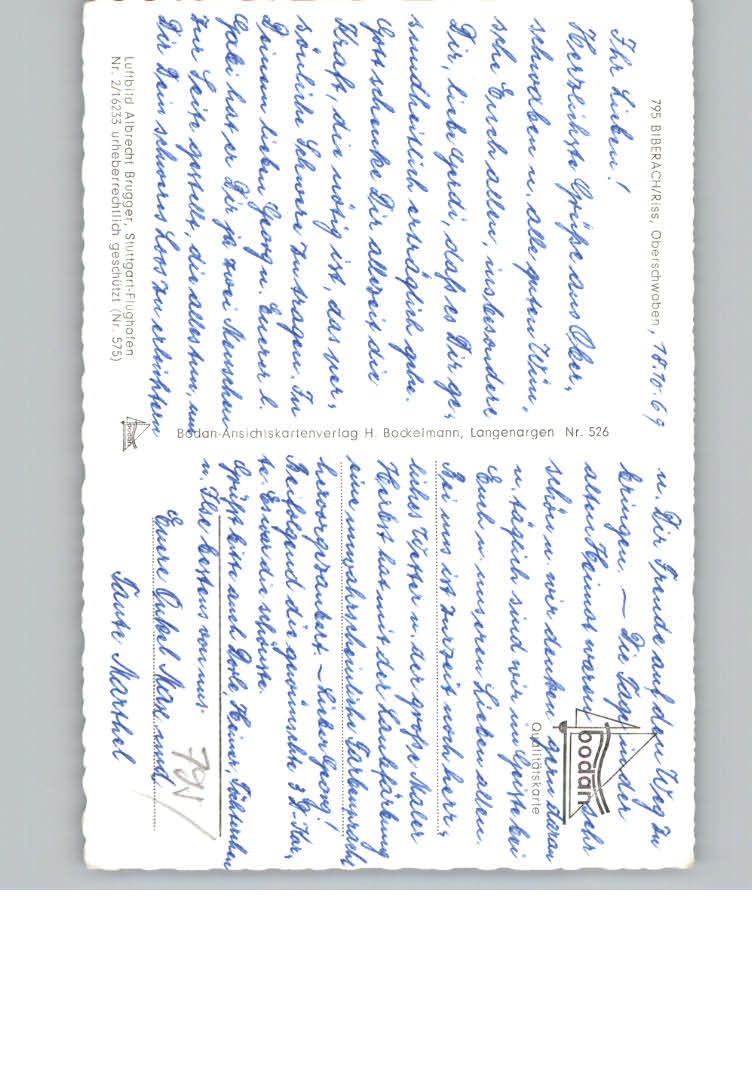 795 BIBERACH/Riss, Oberschwaben, 18.10.69
Ihr Lieben!
Herzlichste Grüße aus Ober,
schwaben u. alle guten Wün,
sche Euch allen, insbesondere
Dir, liebe Gerdi, daß es Dir ge,
sundheitlich erträglich gehe.
Gott schenke Dir allezeit die
Kraft, die nötig ist, das per,
sönliche Schwere zu tragen. In
Deinem lieben Georg u. Euerer l.
Gabi hat er Dir ja zwei Menschen
zur Seite gestellt, die alles tun, um
Dir Dein schweres Los zu erleichtern
Luftbild Albrecht Brugger, Stuttgart-Flughafen
Nr. 2/16233 urheberrechtlich geschützt (Nr. 575)
bodan
Bodan-Ansichtskartenverlag H. Bockelmann, Langenargen Nr. 526
u. Dir Freude auf den Weg zu
bringen. — Die Tage in der
alten Heimat waren sehr
schön u. wir denken gern daran
u. täglich sind wir im Geiste bei
Euch u. unseren Lieben allen.
bodan
Qualitätskarte
Bei uns ist zurzeit noch herr,
liches Wetter u. der große Maler
Herbst hat mit der Laubfärbung
eine unwahrscheinliche Farbenpracht
hervorgezaubert — Lieber Georg!
Beiliegend die gewünschte 3 D-Kar,
te. Es war die schönste.
Grüßt bitte auch Dorle, Heiner,
u. Ilse bestens von uns.
Euere Onkel Max und
Tante Marthel
79N